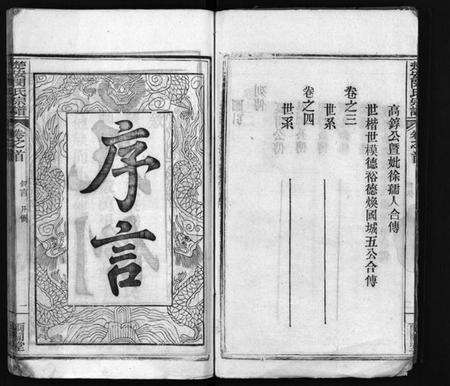 高錞公暨妣徐孺人合傳
世楷世模德裕德煥國城五公合傳
卷之三
世系
卷之四
世系
序言
氏宗譜
卷之首